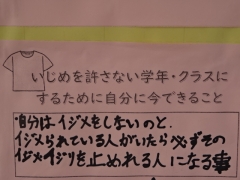 いじめを許さない学年・クラスに
するために自分に今できること
自分はイジメをしないのと、
イジメられている人がいたら必ずその
イジメイジりを止めれる人になる事